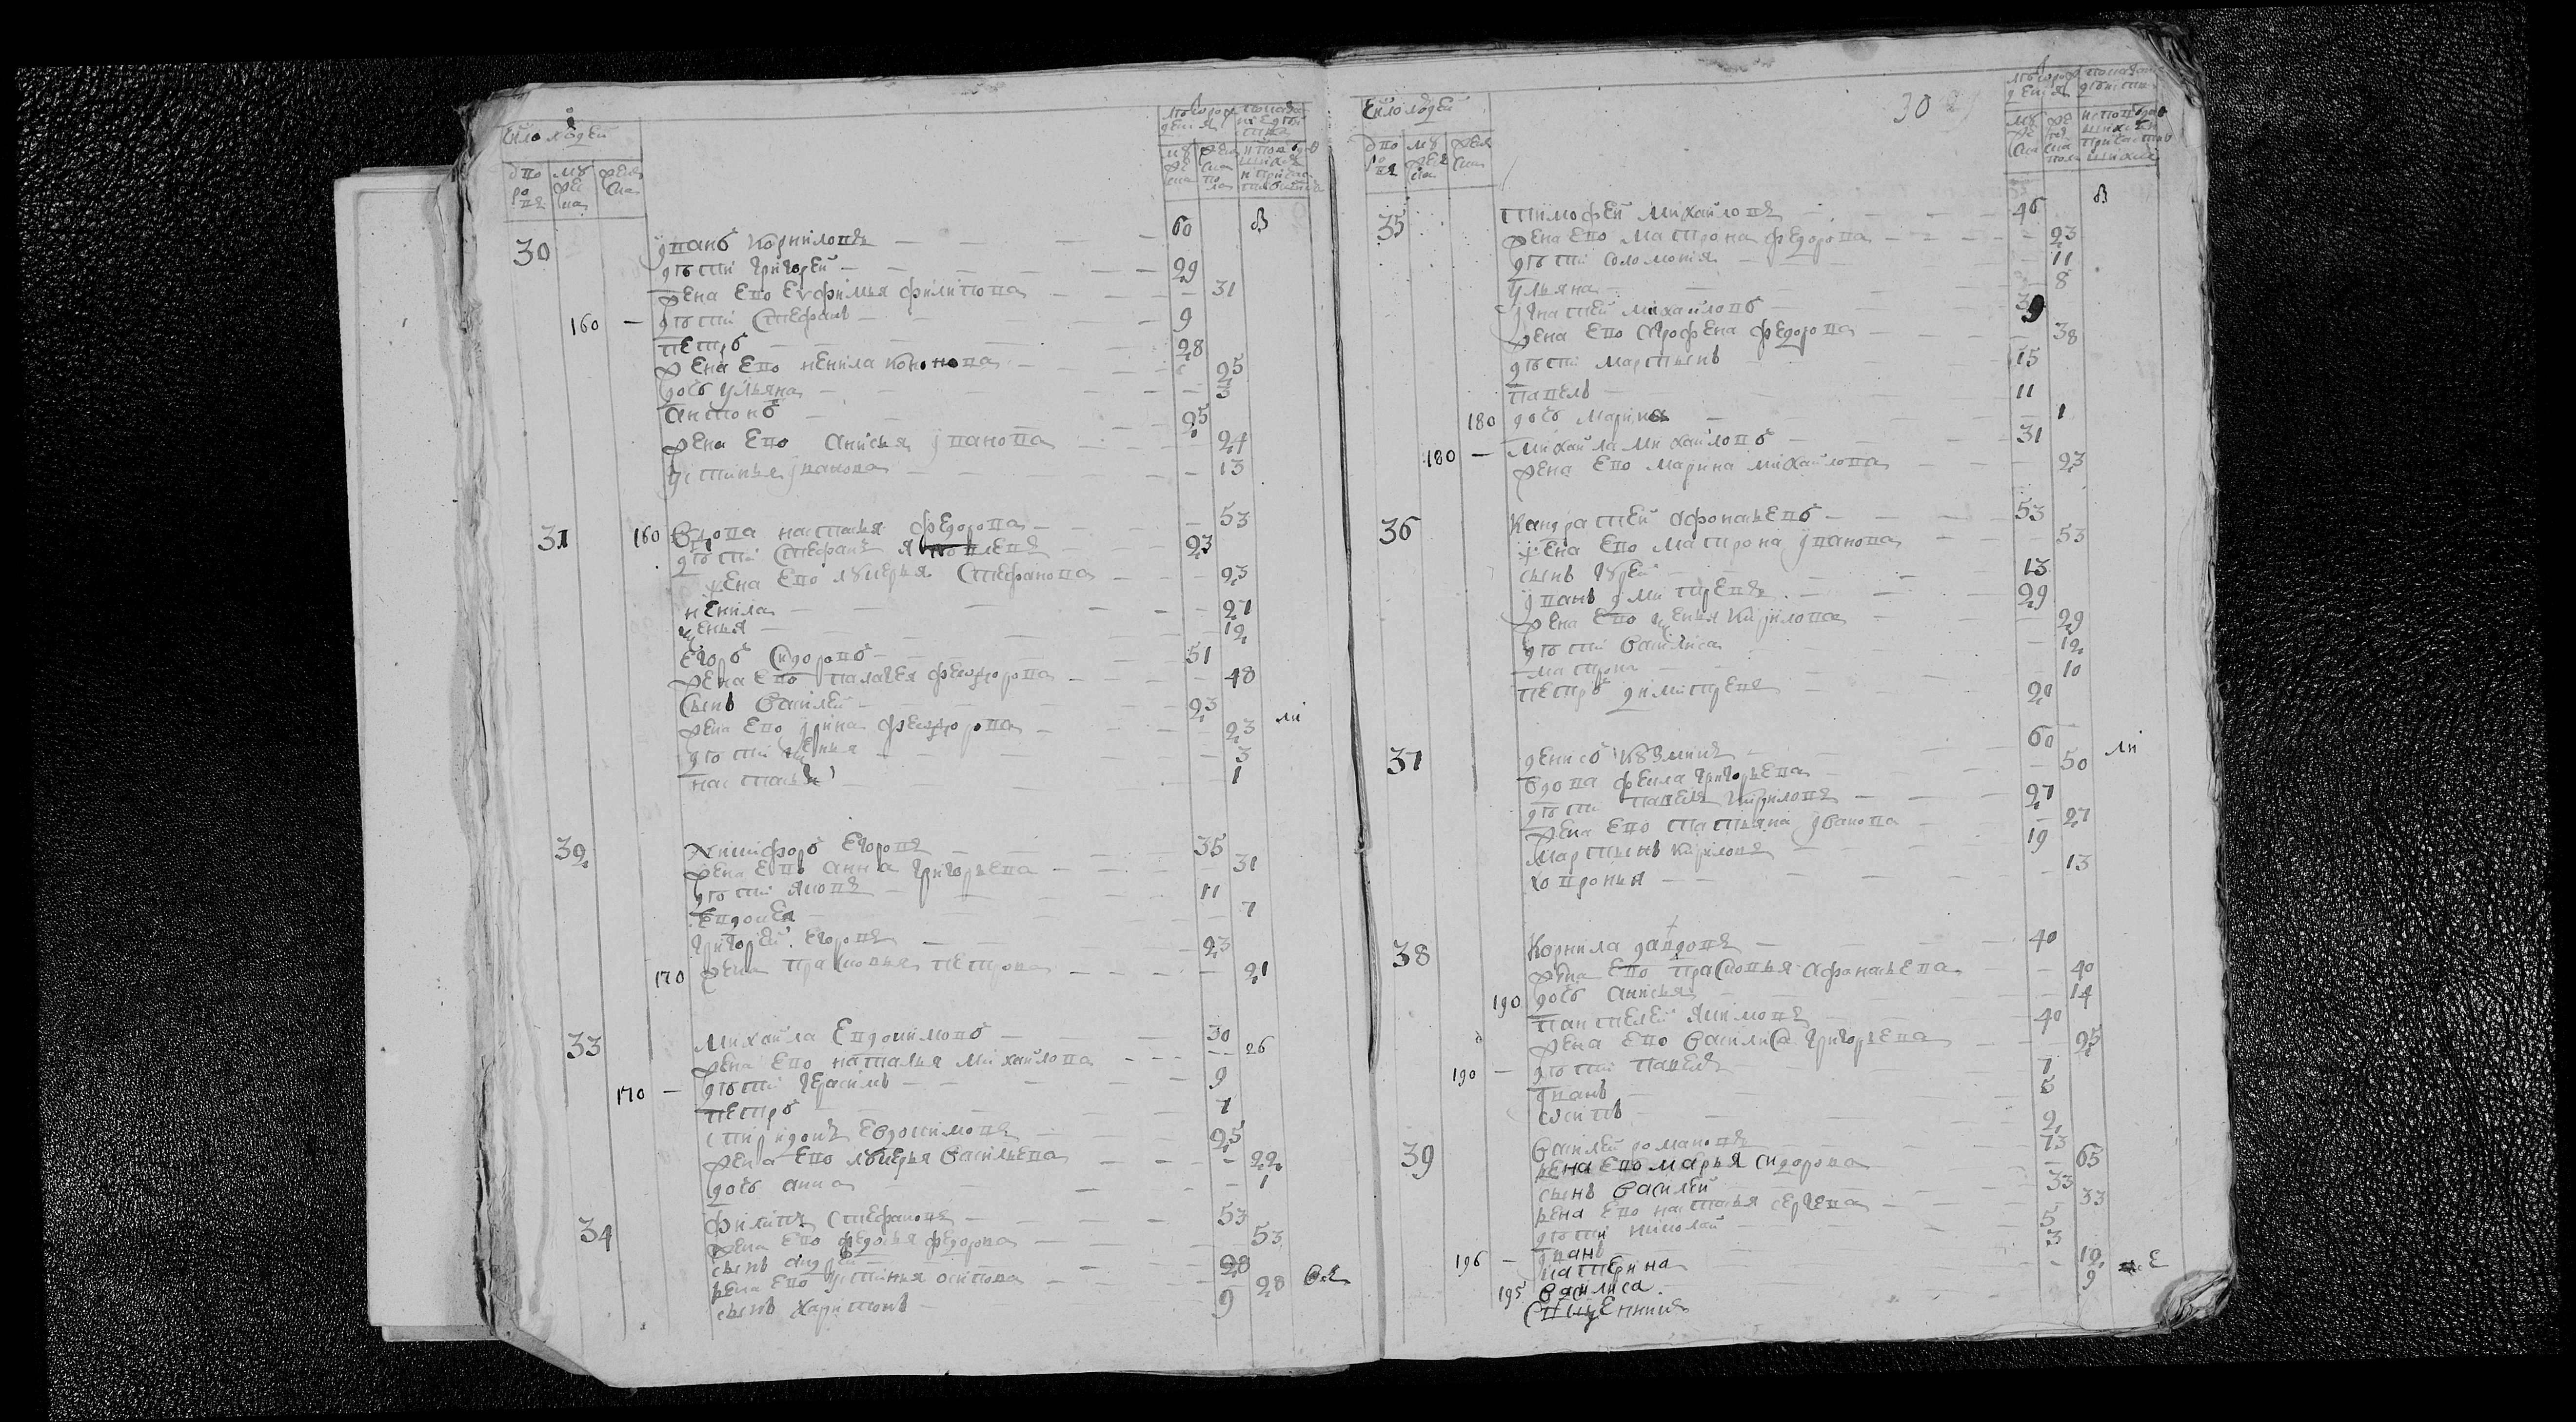 Число людей
дворовъ
мужеска
женска
лѣта от рождения
мужеска
женска пола
30 Иванъ Корниловъ 60
дѣти Григорей 29
жена ево Евфимья Филипова 31
160 дѣти Стефанъ 9
Петръ 28
жена ево Ненила Кононова 25
дочь Ульяна 3
Антонъ 25
жена ево Анисья Иванова 24
Устинья Иванова 13
31 160 Вдова Настасья Федорова 53
дѣти Стефанъ Яковлевъ 23
жена ево Лукерья Стефанова 23
Ненила 21
Ксенья 12
Егоръ Сидоровъ 51
жена ево Палагея Феодорова 48
сынъ Василей 23
жена ево Ирина Феодорова 23
дѣти Ксенья 3
Настасья 1
32 Никифоръ Егоровъ 35
жена евъ Анна Григорьева 31
дѣти Яковъ 11
Евдокея 7
Григорей Егоровъ 23
170 жена Прасковья Петрова 21
33 Михайла Евдокимовъ 30
жена ево Наталья Михайлова 26
170 дѣти Герасимъ 9
Петръ 1
Спиридонъ Евдокимовъ 25
жена ево Лукерья Васильева 22
дочь Анна 1
34 Филипъ Стефановъ 53
жена ево Федосья Федорова 53
сынъ Андрей 28
жена ево Устинья Осипова 28
сынъ Харитонъ 9
30
Число людей
дворовъ
мужеска
женска
лѣта от рождения
мужеска
женска пола
35 Тимофей Михайловъ 46
жена ево Матрона Федорова 23
дѣти Соломония 11
Ульяна 8
Игнатей Михайловъ 39
жена ево Агрофена Федорова 38
дѣти Мартынъ 15
Павелъ 11
180 дочь Марина 1
180 Михайла Михайловъ 31
жена ево Марина Михайлова 23
36 Кандратей Афонасьевъ 53
жена ево Матрона Иванова 53
сынъ Гурей 13
Иванъ Дмитревъ 29
жена ево Ксенья Кирилова 29
дѣти Василиса 12
Матрона 10
Петръ Димитревъ 20
37 Денисъ Кузминъ 60
вдова Фекла Григорьева 50
дѣти Павелъ Кириловъ 27
жена ево Татьяна Иванова 27
Мартынъ Кириловъ 19
Ховронья 13
38 Корнила Давдовъ 40
жена ево Прасковья Афонасьева 40
190 дочь Анисья 14
Пантелей Якимовъ 40
жена ево Василиса Григорьева 25
190 дѣти Павелъ 7
Иванъ 5
Осипъ 2
39 Василей Романовъ 73
жена ево Марья Сидорова 65
сынъ Василей 33
жена ево Настасья Сергева 33
дѣти Николай 5
196 Иванъ 3
Катерина 12
195 Василиса 9
Священникъ